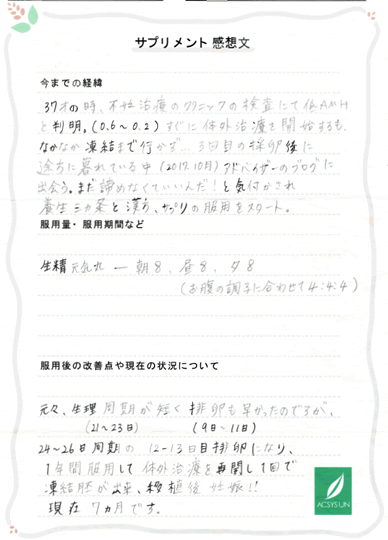 サプリメント 感想文
今までの経緯
37才の時、不妊治療のクリニックの検査にて低AMH
と判明。(0.6〜0.2) すぐに体外治療を開始するも、
なかなか凍結まで行かず… 3回目の採卵後に
途方に暮れている中 (2017.10月) アドバイザーのブログに
出会う。まだ諦めなくていいんだ！と気付かされ
養生三カ条と漢方、サプリの服用をスタート。
服用量・服用期間など
生精 元気丸 ー 朝8、昼8、夕8
(お腹の調子に合わせて4:4:4)
服用後の改善点や現在の状況について
元々、生理周期が短く排卵も早かったのですが、
(21〜23日) (9日〜11日)
24〜26日周期の 12-13日目排卵になり、
1年間服用して体外治療を再開し1回で
凍結胚が出来、移植後妊娠!!
現在 7カ月です。
ACSYSUN